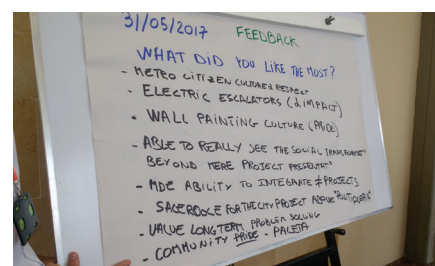 31/05/2017 FEEDBACK
WHAT DID YOU LIKE THE MOST?
- METRO CITIZEN CULTURE & RESPECT
- ELECTRIC ESCALATORS (& IMPACT)
- WALL PAINTING CULTURE (PRIDE)
- ABLE TO REALLY SEE THE SOCIAL TRANSFORMAT°
BEYOND MERE PROJECT PRESENTAT°
- MDE ABILITY TO INTEGRATE ≠ PROJECTS
- FOR THE CITY PROJECT ABOVE
- VALUE LONG TERM PROBLEM SOLVING
- COMMUNITY PRIDE - PALETA